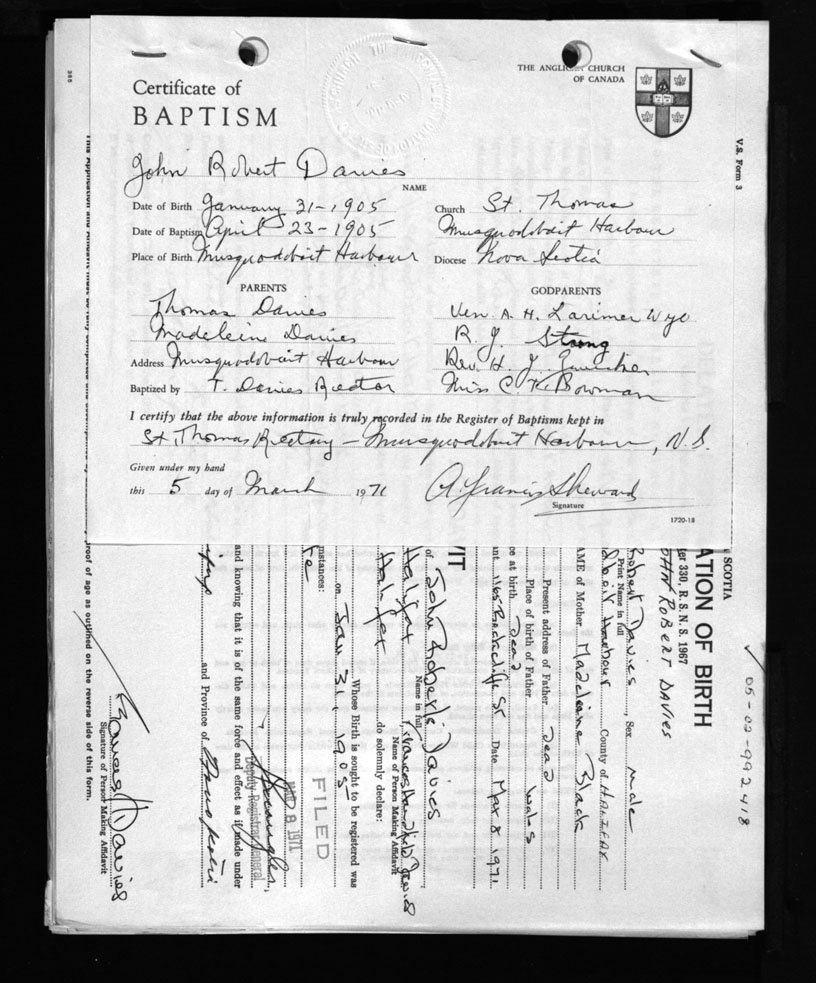 THE ANGLICAN CHURCH
OF CANADA
Certificate of
BAPTISM
John Robert Davies
NAME
Date of Birth January 31-1905
Date of Baptism April 23-1905
Place of Birth Musquodoboit Harbour
Church St. Thomas
Musquodoboit Harbour
Diocese Nova Scotia
PARENTS
Thomas Davies
Madeleine Davies
Address Musquodoboit Harbour
Baptized by T. Davies Rector
GODPARENTS
Ven. A. H. Larimer Wyl
R. J. Strong
Rev. H. J.
Miss C K. Bowman
I certify that the above information is truly recorded in the Register of Baptisms kept in
St. Thomas Rectory – Musquodoboit Harbour, N.S.
Given under my hand
this 5 day of March 1971
A. Francis Sheward
Signature
1720-18
V.S. Form 3
385
SCOTIA
ATION OF BIRTH
er 330, R. S. N. S. 1967
OHN ROBERT DAVIES
05-02-992418
Robert Davies, Sex male
Print Name in full
doboit Harbour County of HALIFAX
AME of Mother Madeleine Black
Present address of Father Dead
Place of birth of Father Wales
ce at birth Dead
nt 1165 Rockcliffe St Date Mar 8 1971
VIT
of John Robert Davies
Name in full
Halifax, Frances Davies
Name of Person Making Affidavit
Halifax do solemnly declare:
Whose Birth is sought to be registered was
on Jan 31, 1905
mstances:
FILED
MAR 8 1971
Deputy Registrar General
and knowing that it is of the same force and effect as if made under
and Province of Nova Scotia
Frances H Davies
Signature of Person Making Affidavit
proof of age as outlined on the reverse side of this form.